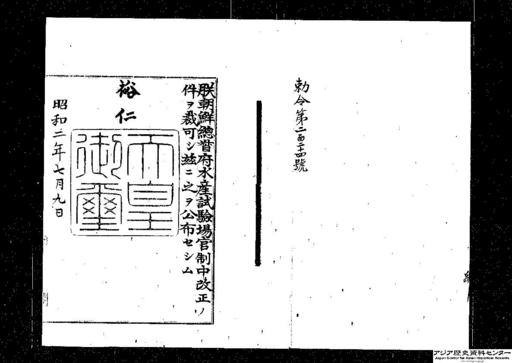 勅令第二百十四號
朕朝鮮總督府水産試驗場官制中改正ノ
件ヲ裁可シ茲ニ之ヲ公布セシム
裕仁
天皇御璽
昭和二年七月九日
アジア歴史資料センター
Japan Center for Asian Historical Records